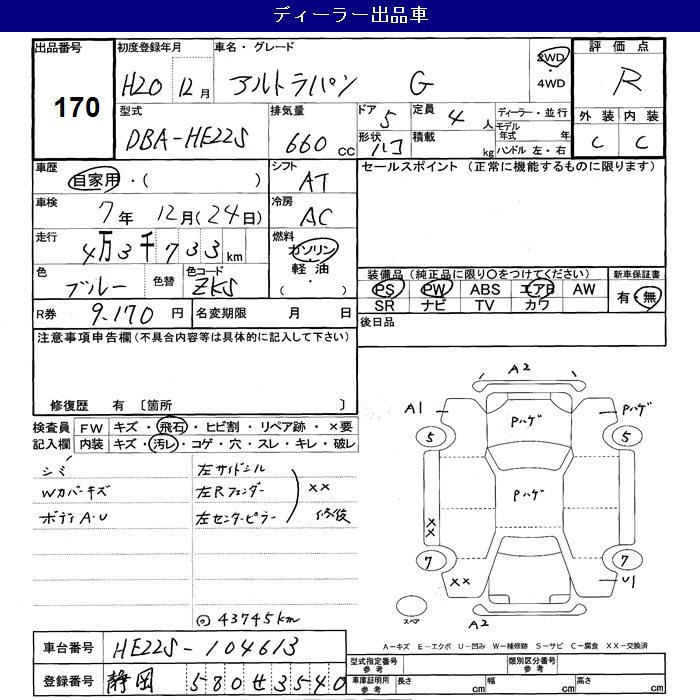 ディーラー出品車
出品番号 170
初度登録年月 H20 12月
車名・グレード アルトラパン G
2WD・4WD
評価点 R
型式 DBA-HE22S
排気量 660cc
ドア 5 定員 4人
形状 ハコ 積載 kg
ディーラー・並行
モデル年式 年
ハンドル 左・右
外装 内装
C C
車歴 自家用・( )
シフト AT
セールスポイント (正常に機能するものに限ります)
車検 7年 12月(24日)
冷房 AC
走行 4万3千733km
燃料 ガソリン・軽油・( )
色 ブルー 色替 色コード ZKS
装備品(純正品に限り○をつけてください)
新車保証書 有・無
PS PW ABS エアB AW
SR ナビ TV カワ
R券 9.170円 名変期限 月 日
後日品
注意事項申告欄(不具合内容等は具体的に記入して下さい)
修復歴 有〔箇所 〕
検査員記入欄 FW キズ・飛石・ヒビ割・リペア跡・×要
内装 キズ・汚レ・コゲ・穴・スレ・キレ・破レ
シミ 左サイドシル
Wカバーキズ 左Rフェンダー ××
ボディA.U 左センターピラー 修復
43745km
A2
A1 Pハゲ Pハゲ
5 5
Pハゲ
××
7 7
×× U1
スペア A2
A-キズ E-エクボ U-凹み W-補修跡 S-サビ C-腐食 XX-交換済
車台番号 HE22S-104613
登録番号 静岡 580せ3540
型式指定番号 参考 類別区分番号 参考
車庫証明用 参考 長さ cm 幅 cm 高さ cm